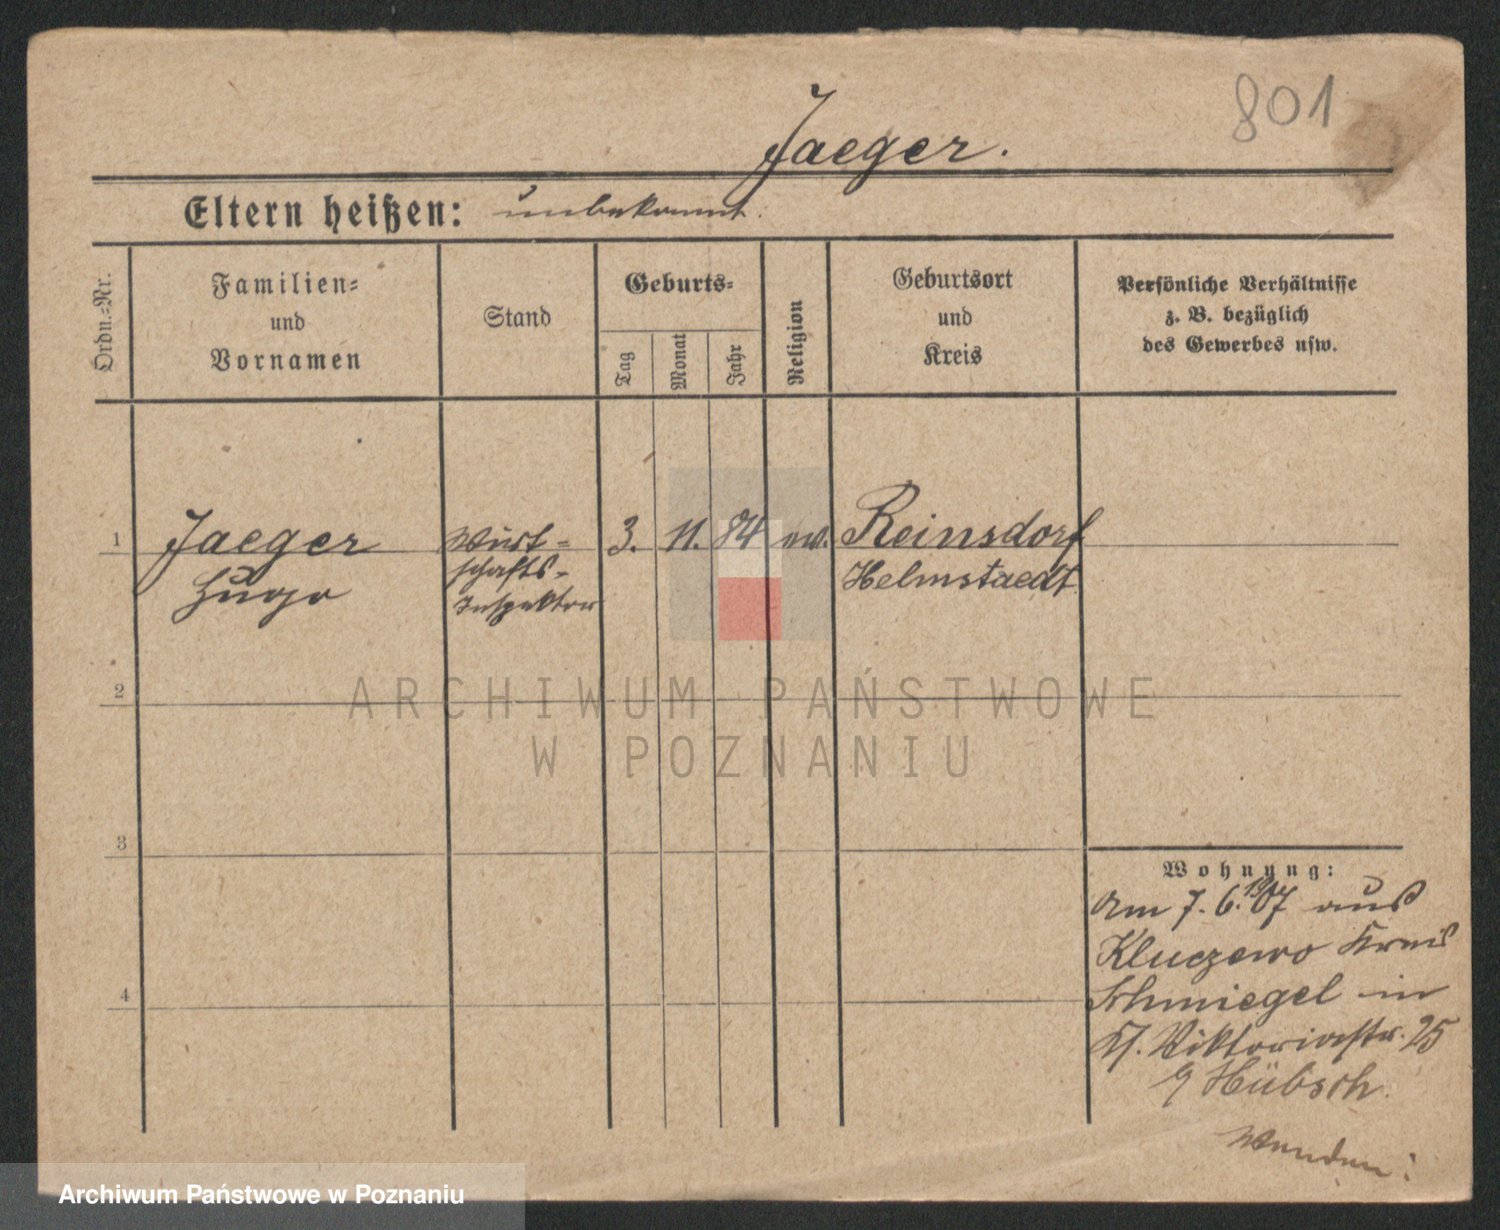 801
Jaeger.
Eltern heißen: unbekannt.
Ordn.-Nr.
Familien-
und
Vornamen
Stand
Geburts-
Tag
Monat
Jahr
Religion
Geburtsort
und
Kreis
Persönliche Verhältnisse
z. B. bezüglich
des Gewerbes usw.
1
Jaeger
Hugo
Wirt-
schafts-
Inspektor
3. 11. 84 ev.
Reinsdorf
Helmstaedt
2
ARCHIWUM PAŃSTWOWE
W POZNANIU
3
4
Wohnung:
Am 7. 6. 1907 aus
Kluczewo Kreis
Schmiegel in
Viktoriastr. 25
Hübsch.
Wenden!
Archiwum Państwowe w Poznaniu